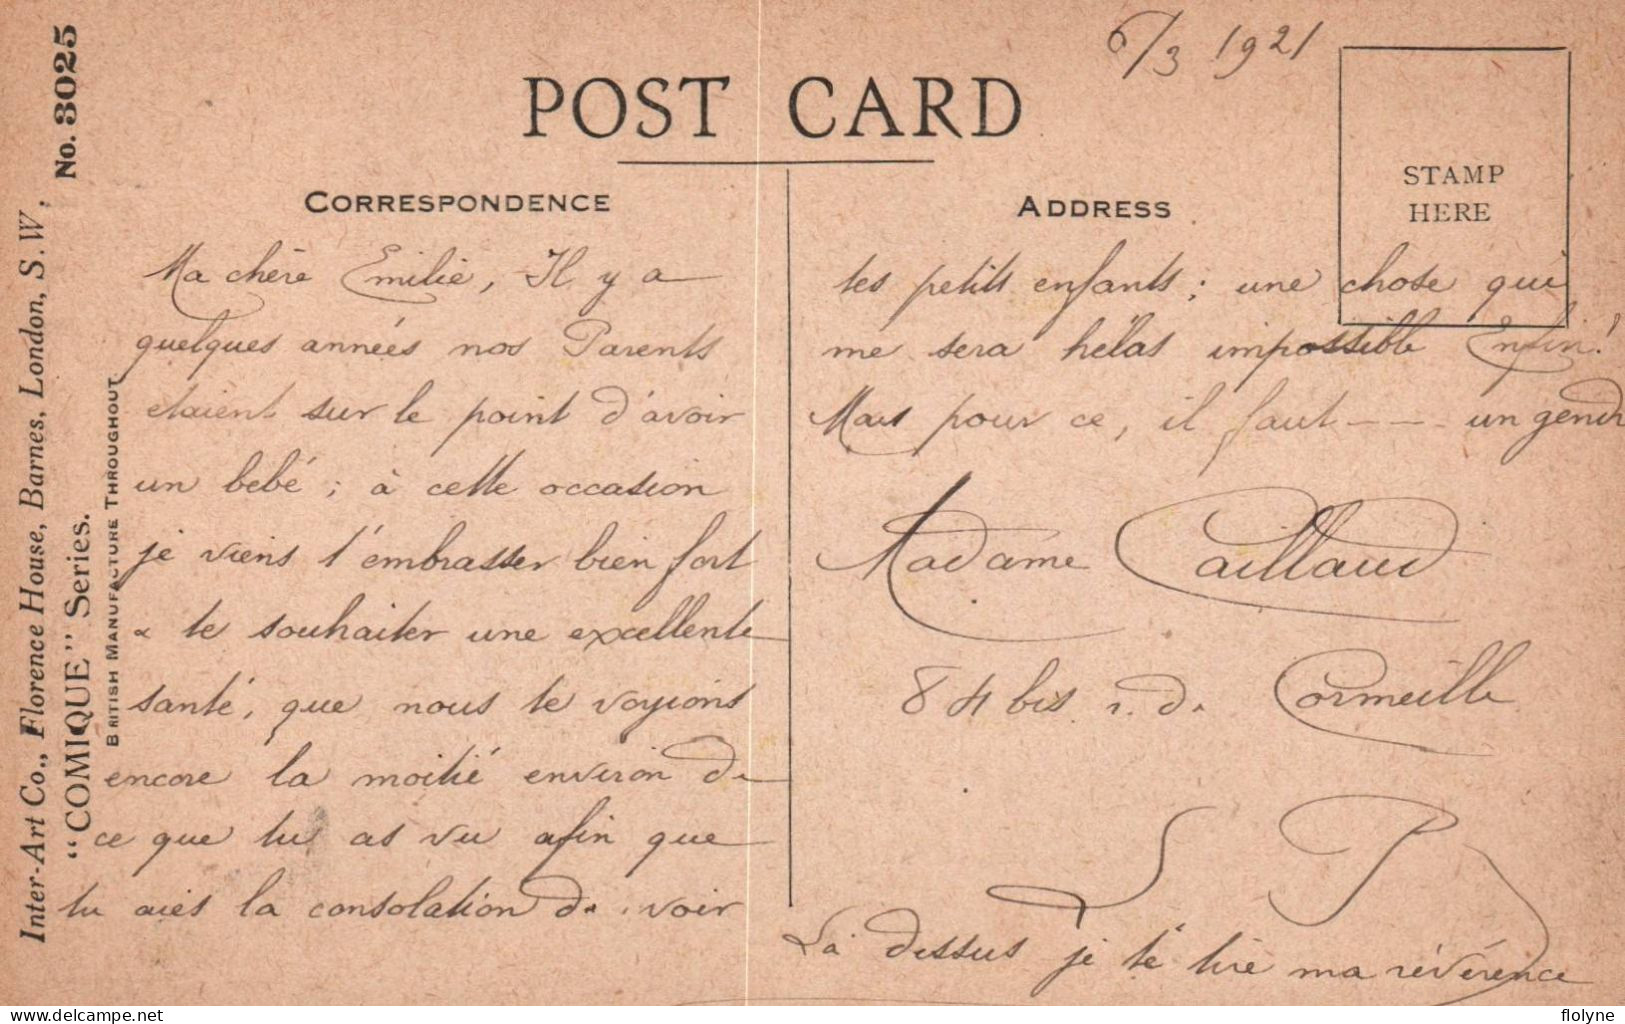 6/3 1921
POST CARD
CORRESPONDENCE
ADDRESS
STAMP
HERE
Ma chère Emilie, Il y a
quelques années nos Parents
etaient sur le point d'avoir
un bebé ; à cette occasion
je viens t'embrasser bien fort
& te souhaiter une excellente
santé, que nous te voyions
encore la moitié environ de
ce que tu as vu afin que
tu aies la consolation de voir
tes petits enfants ; une chose qui
me sera hélas impossible Enfin!
Mais pour ce, il faut --- un gendr
Madame Caillaud
84 bis r. de Cormeille
L P
Là dessus je te tire ma révérence
Inter-Art Co., Florence House, Barnes, London, S.W. No. 3025
"COMIQUE" Series.
BRITISH MANUFACTURE THROUGHOUT
delcampe.net
flolyne